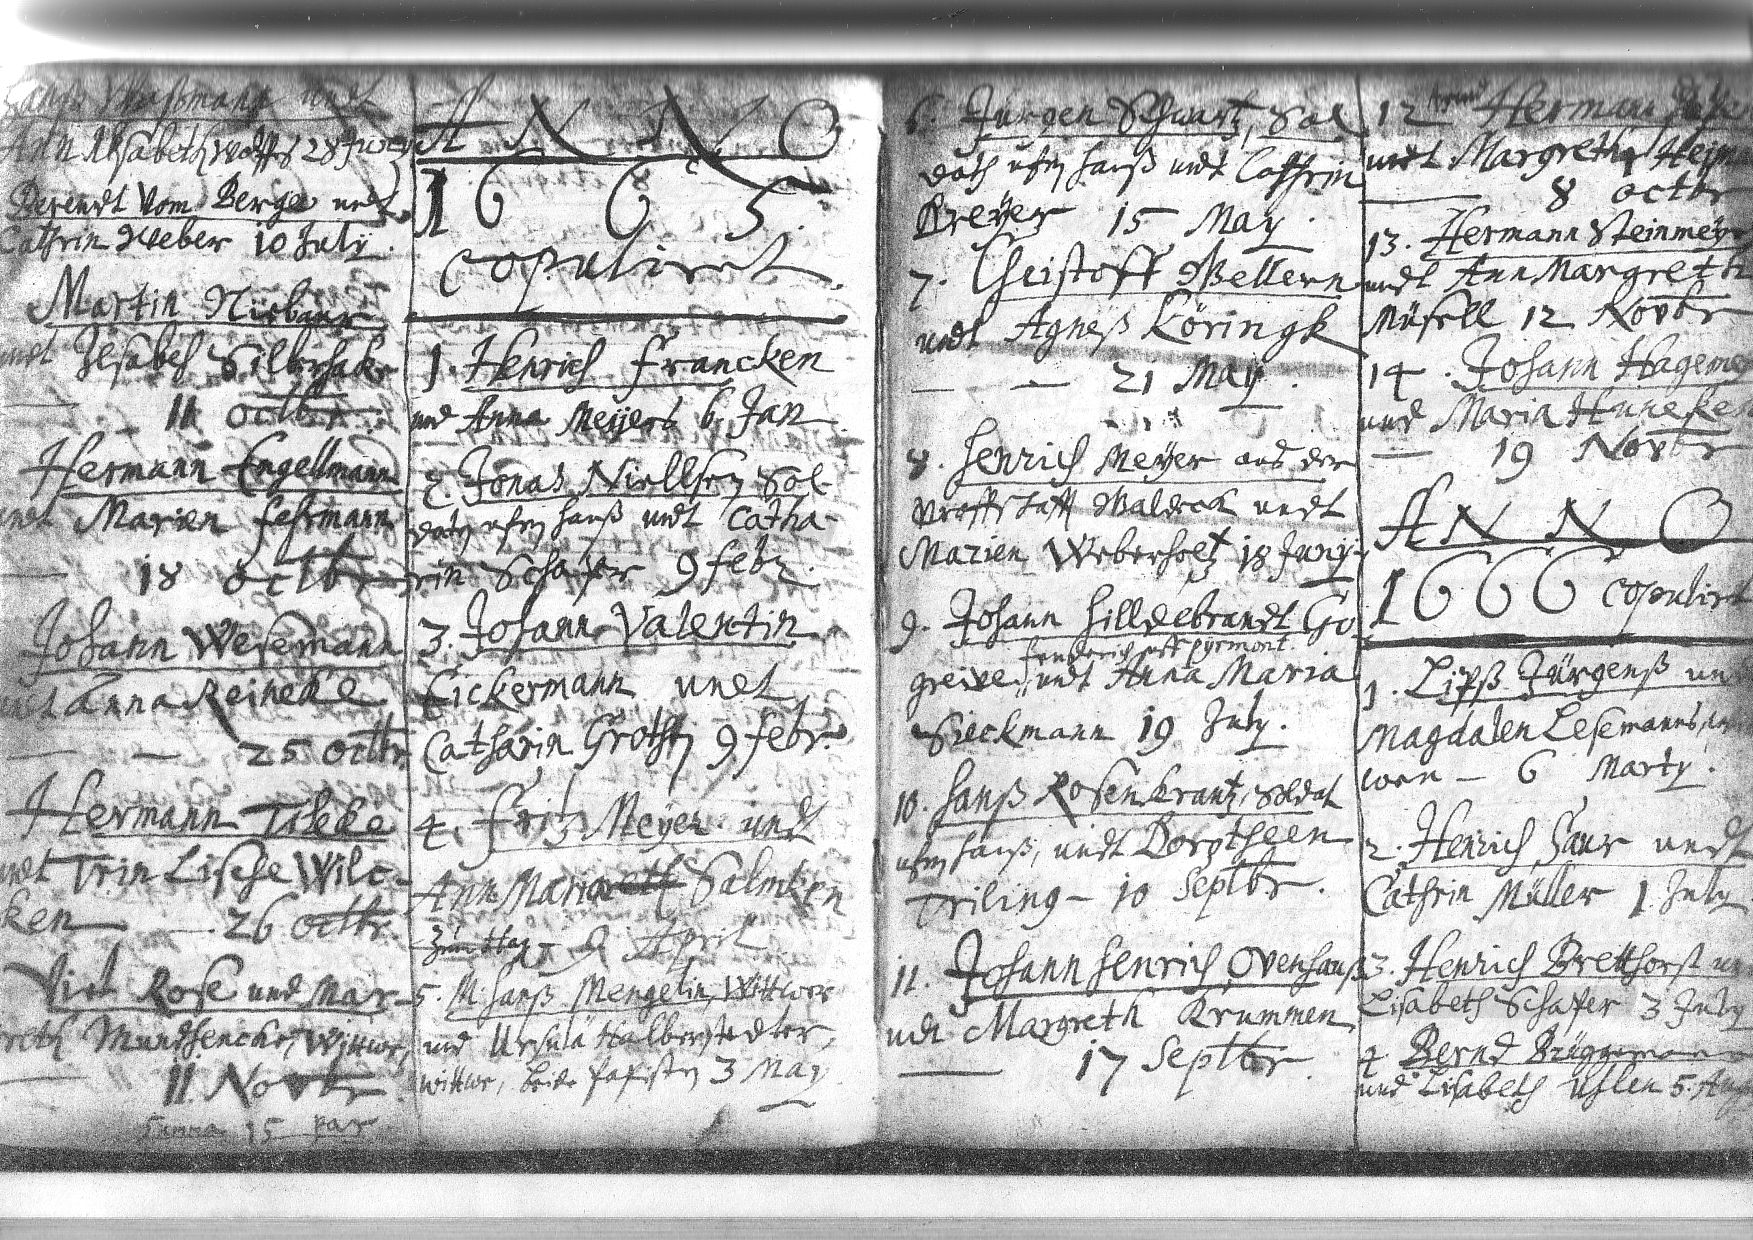 Hanß Waßmann undt
Ann Ilsabeth Wolffs 28 Juny
Berendt Vom Berge undt
Cathrin Weber 10 July.
Martin Niebaur
undt Ilsabeh Silberhake
11 octbr.
Hermann Engellmann
undt Marien fehrmann
18 octbr
Johann Wesemann
undt Anna Reineke
25 octbr
Hermann Tileke
undt Trin Lische Wilc-
ken 26 octbr.
Veit Rose und Mar-
greth Mundhencke, Wittwe,
11 Novbr
Summa 15 par
ANNO
1665.
copuliret
1. Henrich Francken
und Anna Meyers 6. Jan
2. Jonas Niellsen Sol-
dath ufm hauß undt Catha-
rin Schafer 9 febr.
3. Johann Valentin
Eickermann undt
Catharin Groth 9 febr.
4. Fritz Meyer undt
Ann Maria Salmken
9 April
5. M. Hanß Mengelin, Wittwer
und Ursula Halberstedter,
wittwe, beide papisten 3 May
6. Jurgen Schwartz, Sol
dath ufm hauß undt Cathrin
Breyer 15 May.
7. Christoff Wellern
undt Agneß Köringk
21 May.
8. Henrich Meyer aus der
Graffschafft Waldeck undt
Marien Weberholtz 18 Juny.
9. Johann Hilldebrandt Go
fenderich uff Pyrmont.
greive, undt Anna Maria
Sieckmann 19 July.
10. Hanß Rosenkrantz, Soldat
ufm hauß, undt Dorotheen
Triling - 10 Septbr.
11. Johann Henrich Ovenhauß
undt Margreth Krummen
17 Septbr.
12 Hermann
undt Margreth
8 octbr
13. Hermann Steinmeyer
undt Ann Margreth
Müsell 12 Novbr
14. Johann Hageme
und Maria Hunneken
19 Novbr
ANNO
1666 copulirt
1. Lipß Jürgenß und
Magdalen Lesemanns,
wen - 6 Marty.
2. Henrich Saur undt
Cathrin Müller 1 July
3. Henrich Bretthorst un
Lisabeth Schafer 3 July
4 Bernd Brüggemann
und Lisabeth Uhlen 5. Aug